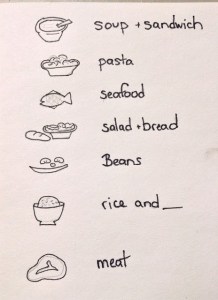 soup + sandwich
pasta
seafood
salad + bread
Beans
rice and __
meat